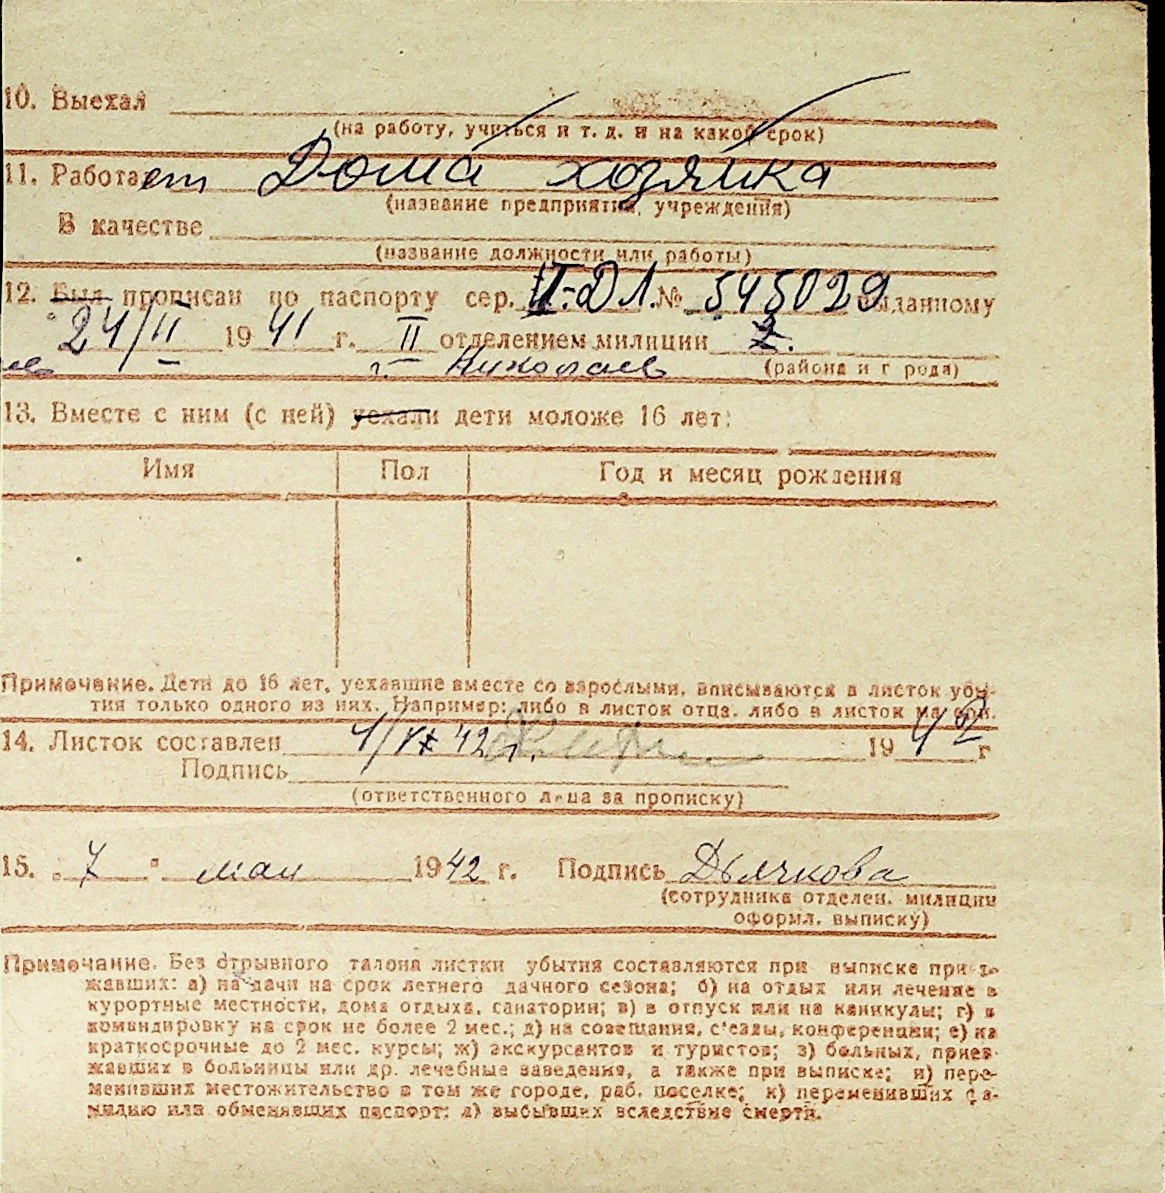 10. Выехал
(на работу, учиться и т. д. и на какой срок)
11. Работает Дома хозяйка
(название предприятия, учреждения)
В качестве
(название должности или работы)
12. Был прописан по паспорту сер. II-ДЛ. № 545029 выданному
24/II 1941 г. II отделением милиции
г. Николаев (района и г рода)
13. Вместе с ним (с ней) уехали дети моложе 16 лет:
Имя Пол Год и месяц рождения
Примечание. Дети до 16 лет, уехавшие вместе со взрослыми, вписываются в листок убы-
тия только одного из них. Например: либо в листок отца, либо в листок матери.
14. Листок составлен 42 г. 1942 г
Подпись
(ответственного лица за прописку)
15. „7" мая 1942 г. Подпись Дьячкова
(сотрудника отделен. милиции
оформл. выписку)
Примечание. Без отрывного талона листки убытия составляются при выписке приез-
жавших: а) на дачи на срок летнего дачного сезона; б) на отдых или лечение в
курортные местности, дома отдыха, санатории; в) в отпуск или на каникулы; г) в
командировку на срок не более 2 мес.; д) на совещания, с'езды, конференции; е) на
краткосрочные до 2 мес. курсы; ж) экскурсантов и туристов; з) больных, приез-
жавших в больницы или др. лечебные заведения, а также при выписке; и) пере-
менивших местожительство в том же городе, раб. поселке; к) переменивших фа-
милию или обменявших паспорт; л) выбывших вследствие смерти.